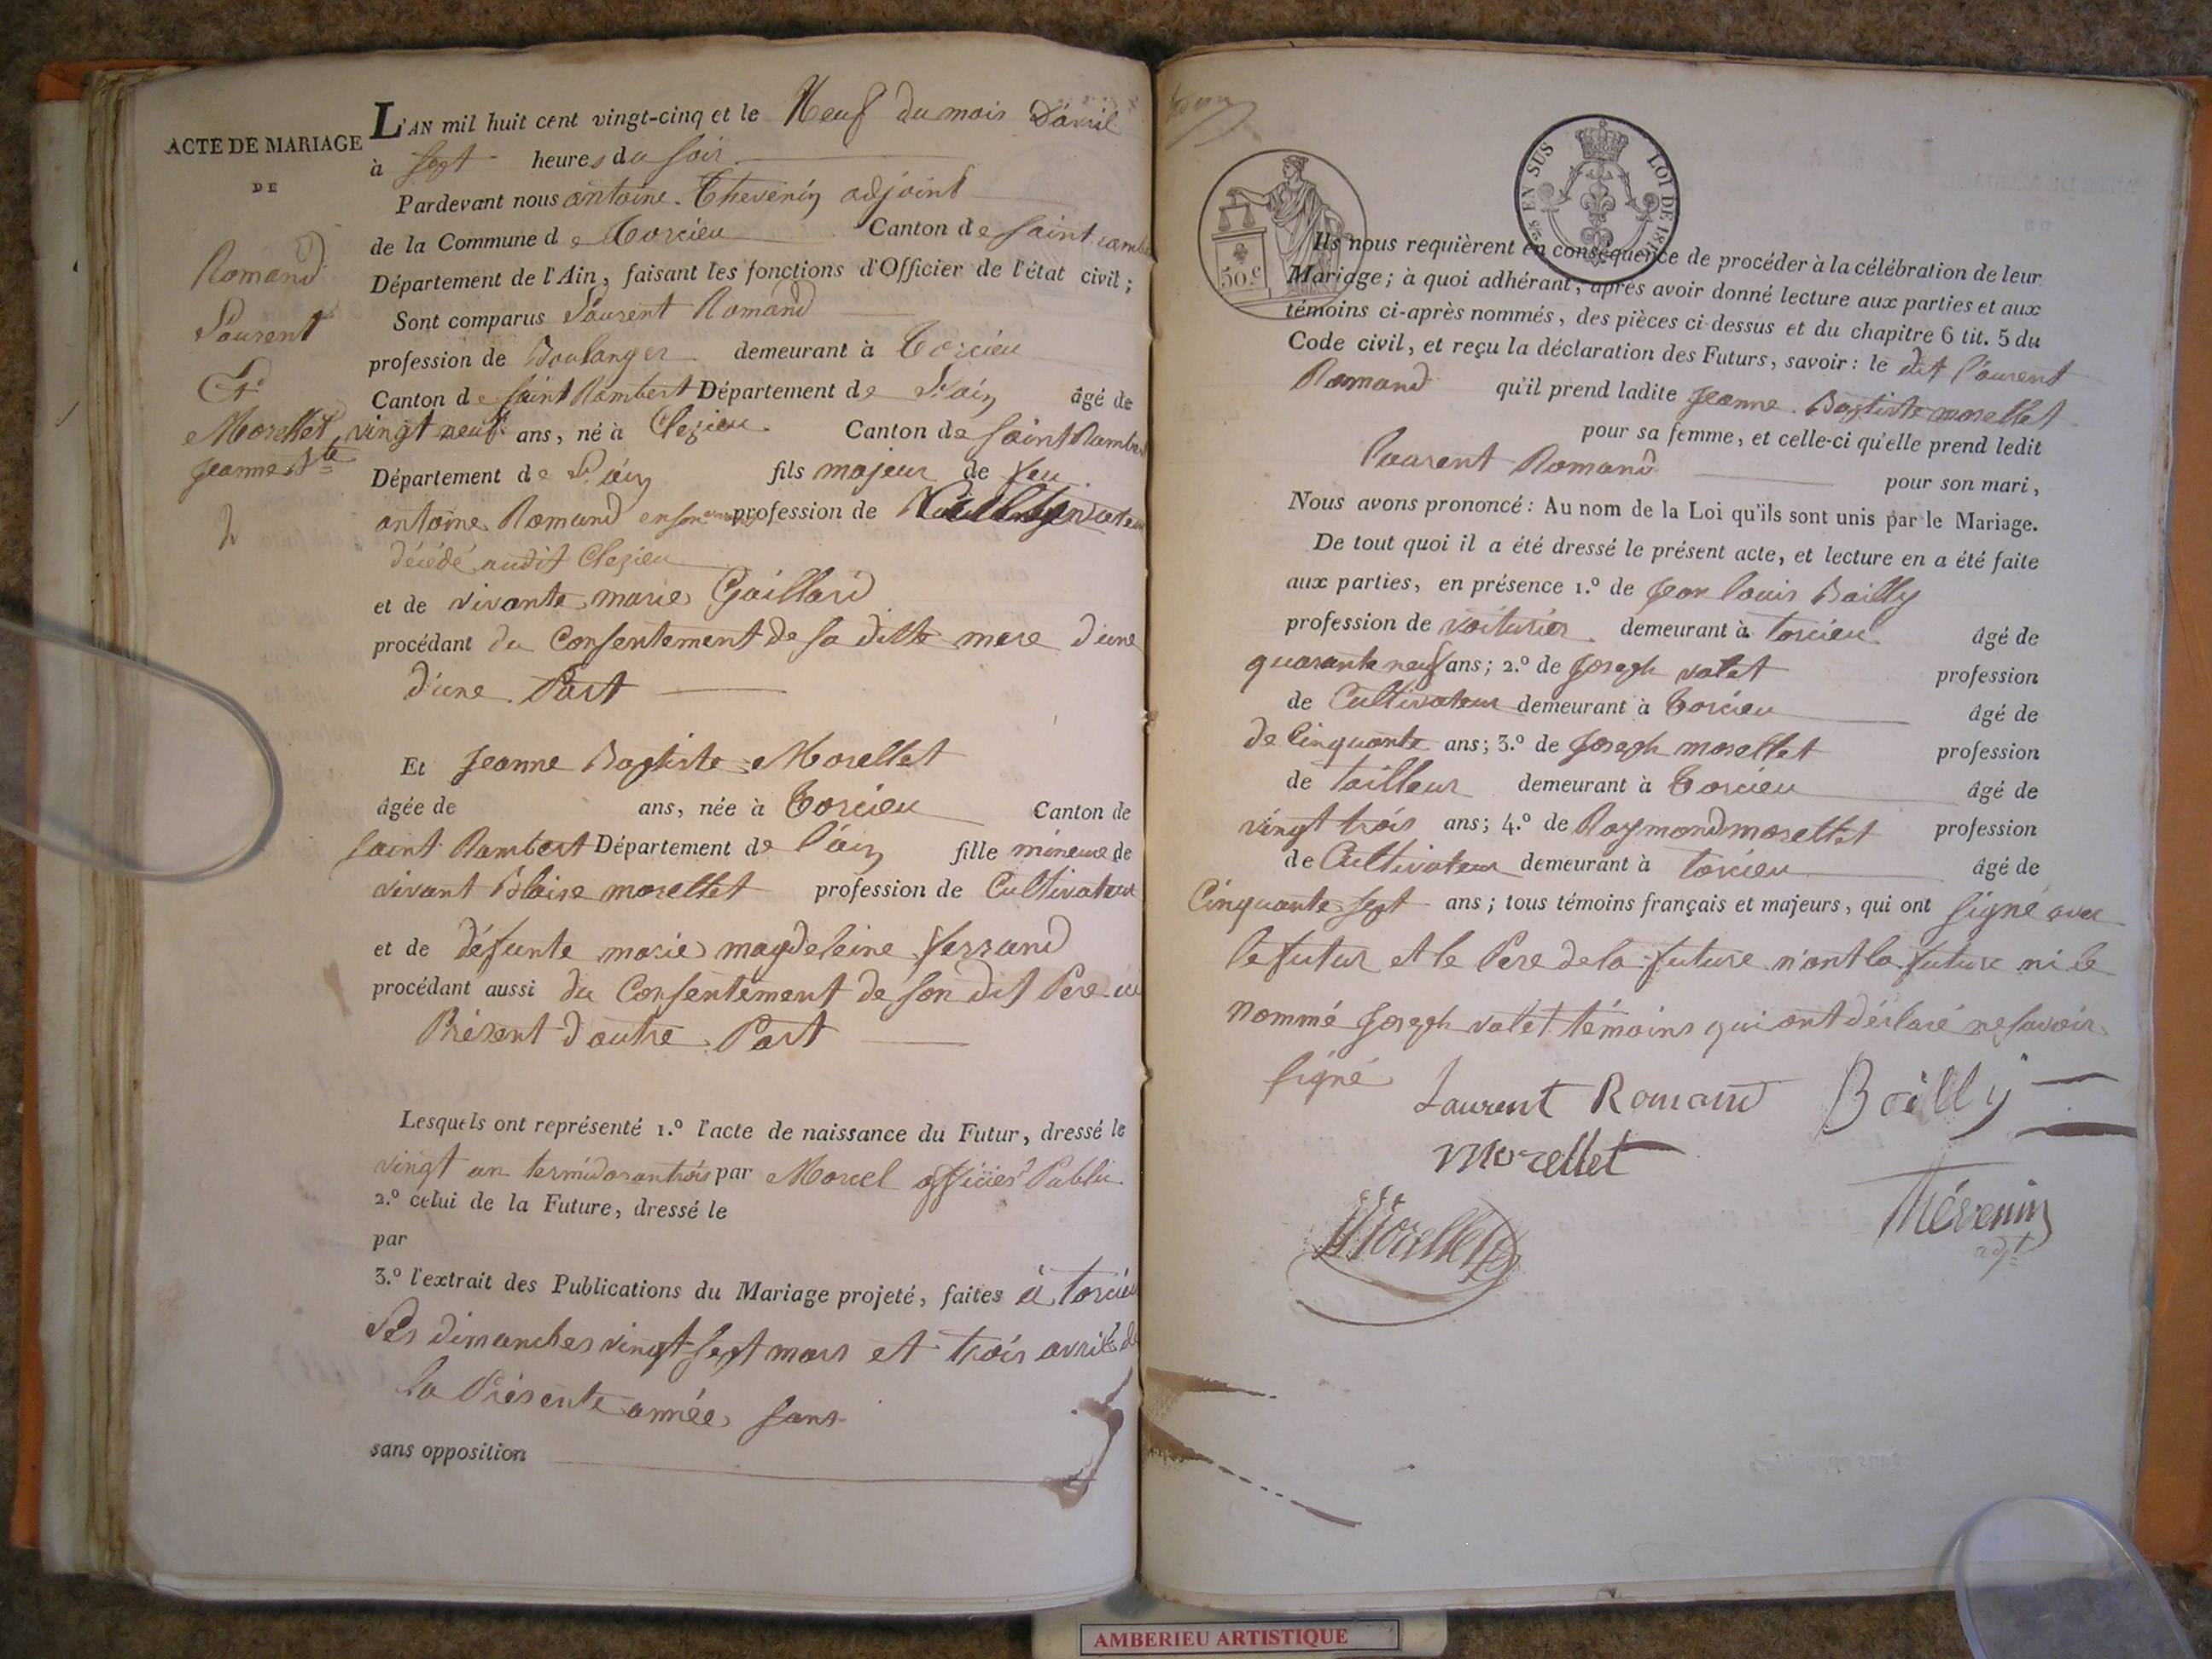 ACTE DE MARIAGE
DE
Romand
Laurent
Et
Morellet
Jeanne Bte
2
L'AN mil huit cent vingt-cinq et le Neuf du mois D'avril
à sept heures du soir
Pardevant nous antoine Thevenin adjoint
de la Commune de Torcieu Canton de Saint ramb
Département de l'Ain, faisant les fonctions d'Officier de l'état civil;
Sont comparus Laurent Romand
profession de Boulanger demeurant à Torcieu
Canton de Saint Rambert Département de L'ain âgé de
vingt neuf ans, né à Clezieu Canton de Saint Rambert
Département de L'ain fils majeur de feu
antoine Romand en son vivant profession de Cultivateur
décédé audit Clezieu
et de vivante marie Gaillard
procédant du Consentement de sa ditte mere d'une
d'une Part
Et Jeanne Baptiste Morellet
âgée de ans, née à Torcieu Canton de
Saint Rambert Département de l'ain fille mineure de
vivant Blaise morellet profession de Cultivateur
et de défunte marie magdeleine ferrand
procédant aussi du Consentement de son dit Pere ici
Présent d'autre Part
Lesquels ont représenté 1.º l'acte de naissance du Futur, dressé le
vingt un termidor an trois par Morcel officier Public
2.º celui de la Future, dressé le
par
3.º l'extrait des Publications du Mariage projeté, faites à torcieu
Les dimanches vingt sept mars et trois avril de
la Présente année sans
sans opposition
50.c
EN SUS LOI DE 1816
Ils nous requièrent en conséquence de procéder à la célébration de leur
Mariage; à quoi adhérant, après avoir donné lecture aux parties et aux
témoins ci-après nommés, des pièces ci-dessus et du chapitre 6 tit. 5 du
Code civil, et reçu la déclaration des Futurs, savoir: le dit laurent
Romand qu'il prend ladite Jeanne Baptiste morellet
pour sa femme, et celle-ci qu'elle prend ledit
laurent Romand pour son mari,
Nous avons prononcé: Au nom de la Loi qu'ils sont unis par le Mariage.
De tout quoi il a été dressé le présent acte, et lecture en a été faite
aux parties, en présence 1.º de Jean louis Bailly
profession de voiturier demeurant à torcieu âgé de
quarante neuf ans; 2.º de Joseph valet profession
de Cultivateur demeurant à Torcieu âgé de
de Cinquante ans; 3.º de Joseph morellet profession
de tailleur demeurant à Torcieu âgé de
vingt trois ans; 4.º de Raymond morellet profession
de Cultivateur demeurant à torcieu âgé de
Cinquante sept ans; tous témoins français et majeurs, qui ont signé avec
le futur et le Pere de la future n'ont la future ni le
nommé Joseph valet témoins qui ont déclaré ne savoir
signé
Laurent Romand Bailly
morellet
Morellet
Thévenin
adjt
AMBERIEU ARTISTIQUE